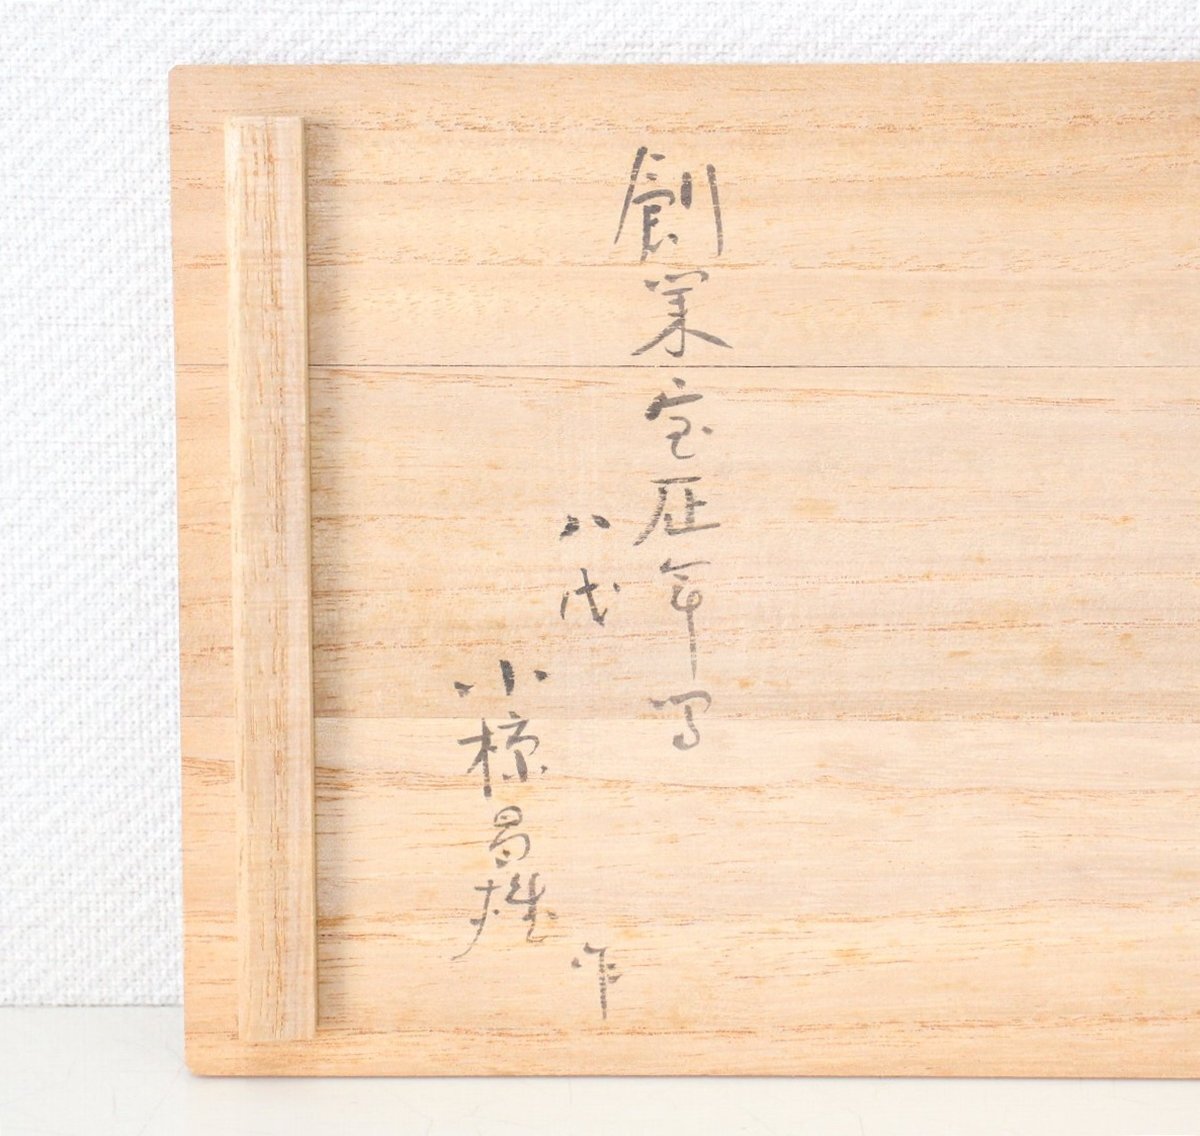 創業宝暦年間
八代
小椋昌雄
作